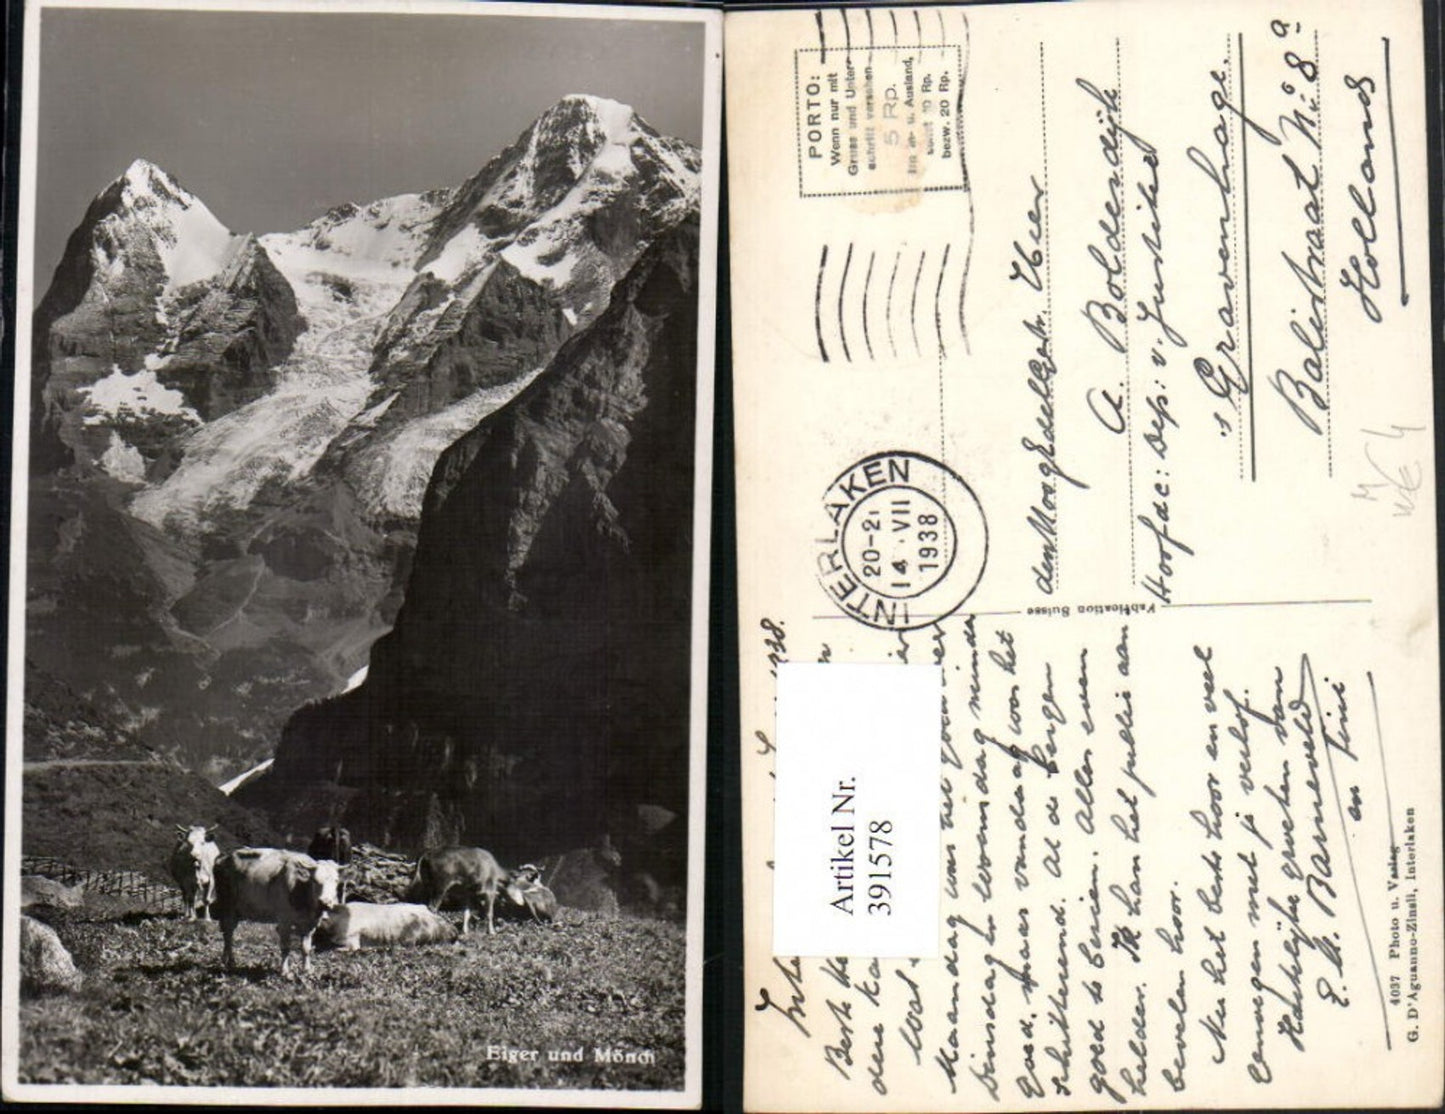 Eiger und Mönch
PORTO:
Wenn nur mit
Gruss und Unter-
schrift versehen
5 Rp.
im In- u. Ausland,
sonst 10 Rp.
bezw. 20 Rp.
INTERLAKEN
20-21
14.VII
1938
Heer
A. Boldendijk
Hoofdac: Dep: v. Justitie
's Gravenhage.
Balistraat No: 8a
Holland
Fabrication Suisse
1938.
Best
Maandag was het
Dinsdag en woensdag minder
goed, maar vandaag was het
schitterend. Al de bergen
goed te zien. Alles even
helder. Ik kan het jullie aan
bevelen hoor.
Nu het beste hoor en veel
genoegen met je verlof.
Hartelijke groeten van
E. A. Barneveld
en Tini
4037 Photo u. Verlag
G. D'Aguanno-Zinsli, Interlaken
Artikel Nr.
391578